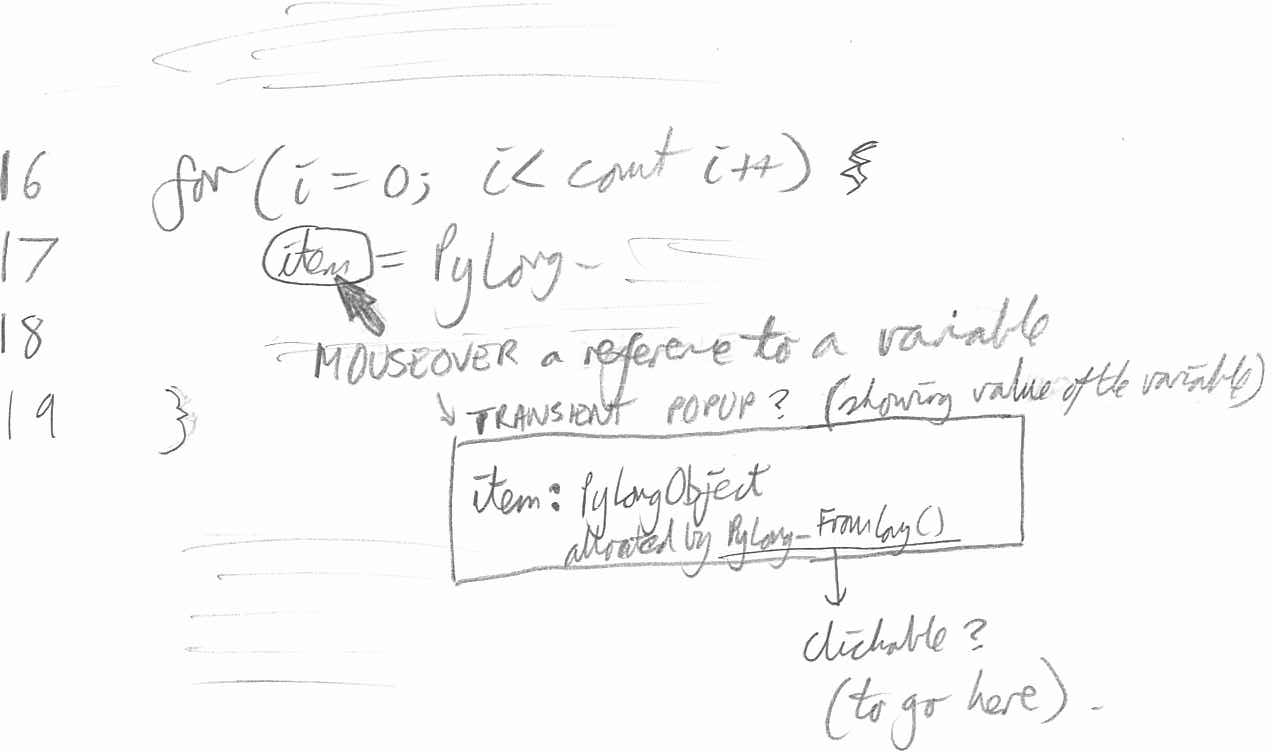 16 for (i = 0; i < count i++) {
17 item = PyLong_
18
MOUSEOVER a reference to a variable
19 }
TRANSIENT POPUP? (showing value of the variable)
item: PyLongObject
allocated by PyLong_FromLong()
clickable?
(to go here).